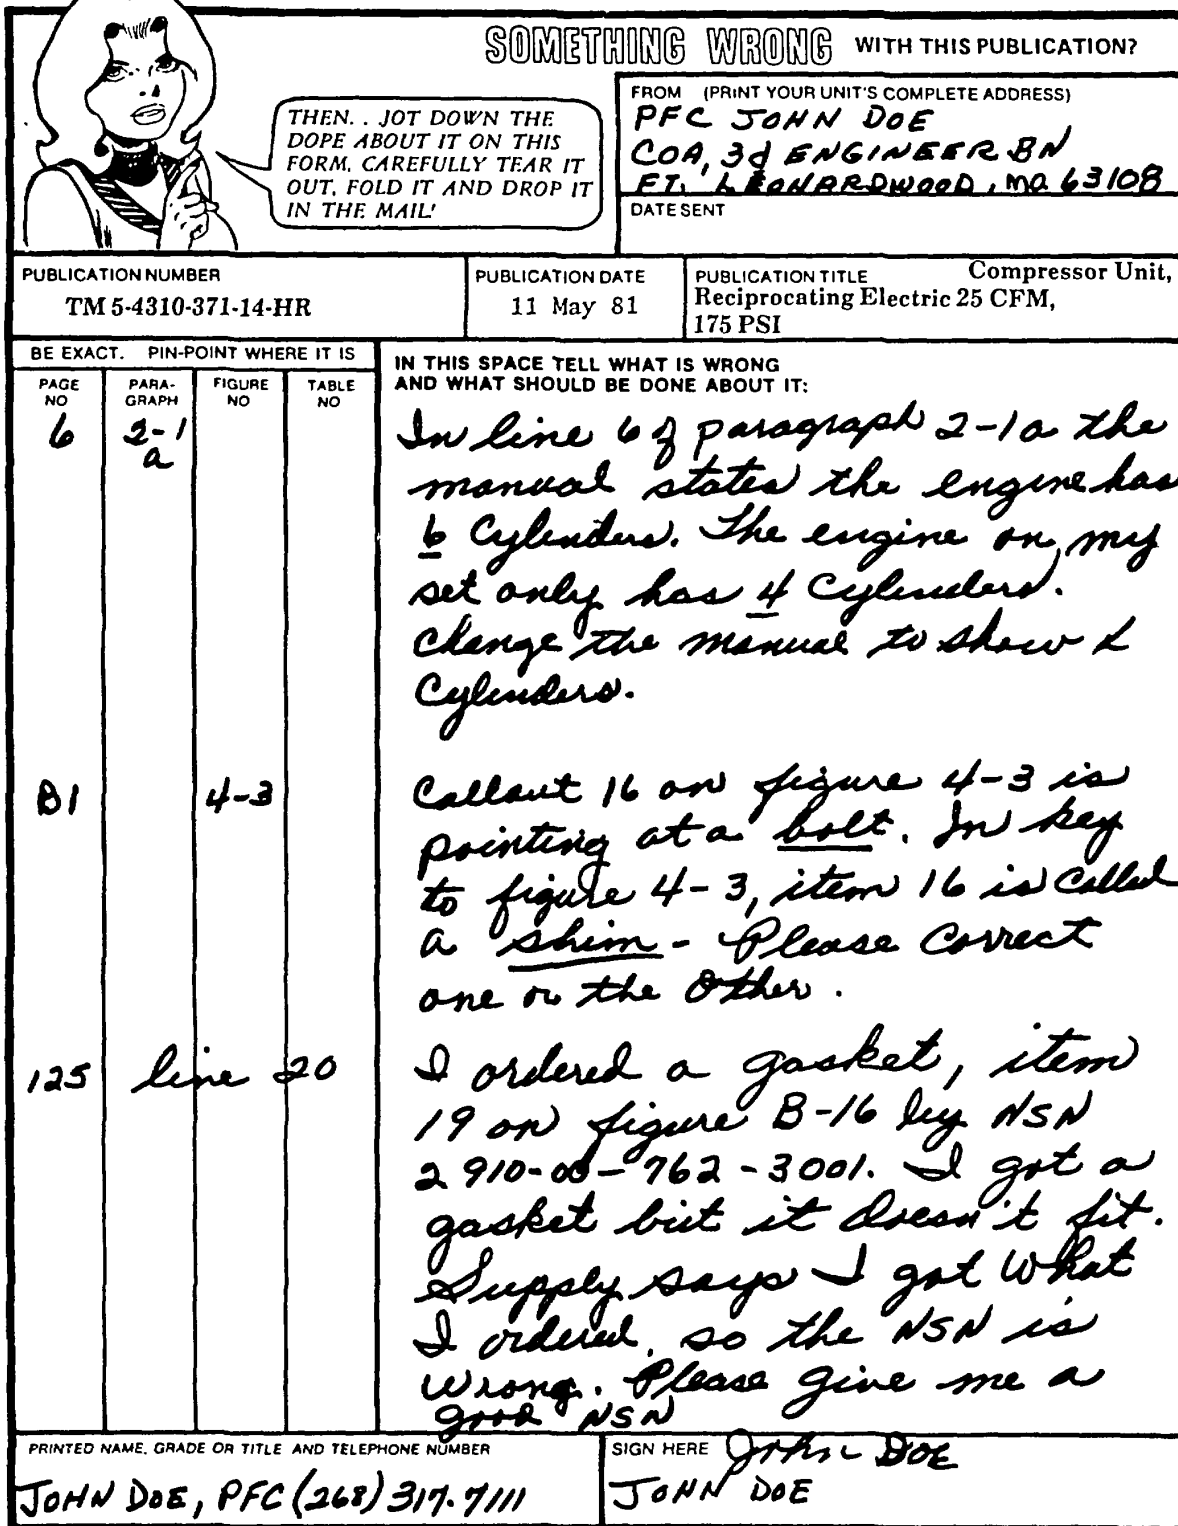 SOMETHING WRONG WITH THIS PUBLICATION?
THEN. . JOT DOWN THE
DOPE ABOUT IT ON THIS
FORM, CAREFULLY TEAR IT
OUT, FOLD IT AND DROP IT
IN THE MAIL!
FROM (PRINT YOUR UNIT'S COMPLETE ADDRESS)
PFC JOHN DOE
COA, 3d ENGINEER BN
FT. LEONARDWOOD, MO. 63108
DATE SENT
PUBLICATION NUMBER
TM 5-4310-371-14-HR
PUBLICATION DATE
11 May 81
PUBLICATION TITLE Compressor Unit,
Reciprocating Electric 25 CFM,
175 PSI
BE EXACT. PIN-POINT WHERE IT IS
PAGE
NO
PARA-
GRAPH
FIGURE
NO
TABLE
NO
IN THIS SPACE TELL WHAT IS WRONG
AND WHAT SHOULD BE DONE ABOUT IT:
6
2-1
a
In line 6 of paragraph 2-1a the
manual states the engine has
6 Cylinders. The engine on my
set only has 4 Cylinders.
Change the manual to show
Cylinders.
B1
4-3
Callout 16 on figure 4-3 is
pointing at a bolt. In key
to figure 4-3, item 16 is called
a shim - Please Correct
one or the Other.
125
line 20
I ordered a gasket, item
19 on figure B-16 by NSN
2910-00-762-3001. I got a
gasket but it doesn't fit.
Supply says I got what
I ordered, so the NSN is
wrong. Please give me a
good NSN
PRINTED NAME, GRADE OR TITLE AND TELEPHONE NUMBER
JOHN DOE, PFC (268) 317.7111
SIGN HERE John DOE
JOHN DOE